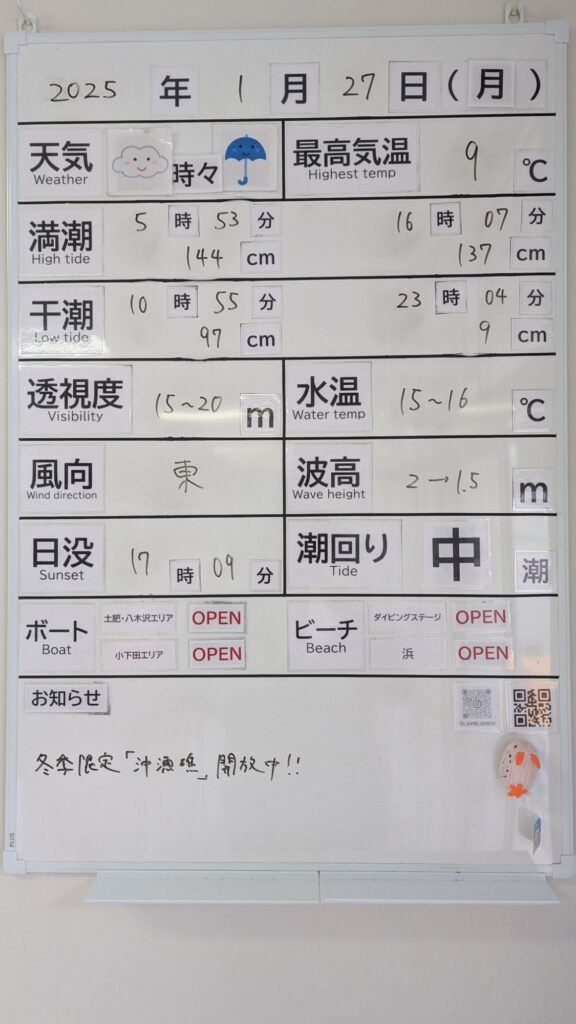 2025 年 1 月 27 日 (月)
天気 時々 最高気温 9 ℃
Weather Highest temp
満潮 5 時 53 分 16 時 07 分
High tide 144 cm 137 cm
干潮 10 時 55 分 23 時 04 分
Low tide 97 cm 9 cm
透視度 15~20 m 水温 15~16 ℃
Visibility Water temp
風向 東 波高 2→1.5 m
Wind direction Wave height
日没 17 時 09 分 潮回り 中 潮
Sunset Tide
ボート 土肥・八木沢エリア OPEN ビーチ ダイビングステージ OPEN
Boat 小下田エリア OPEN Beach 浜 OPEN
お知らせ
冬季限定「沖漁礁」開放中!!
PLUS